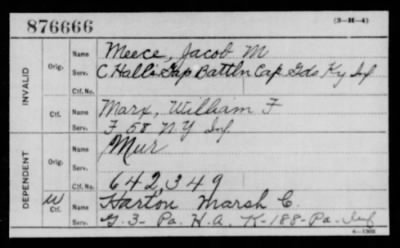 876666
(3-H-4)
INVALID
Orig.
Name
Meece, Jacob M
Serv.
C Halls Gap Battln Cap Gds Ky Inf
Ctf. No.
Ctf.
Name
Marx, William F
Serv.
F 58 NY Inf
DEPENDENT
Orig.
Name
Mur
Serv.
Ctf. No.
642,349
W
Ctf.
Name
Harton Marsh C.
Serv.
G-3-Pa. H.A. K-188-Pa-Inf